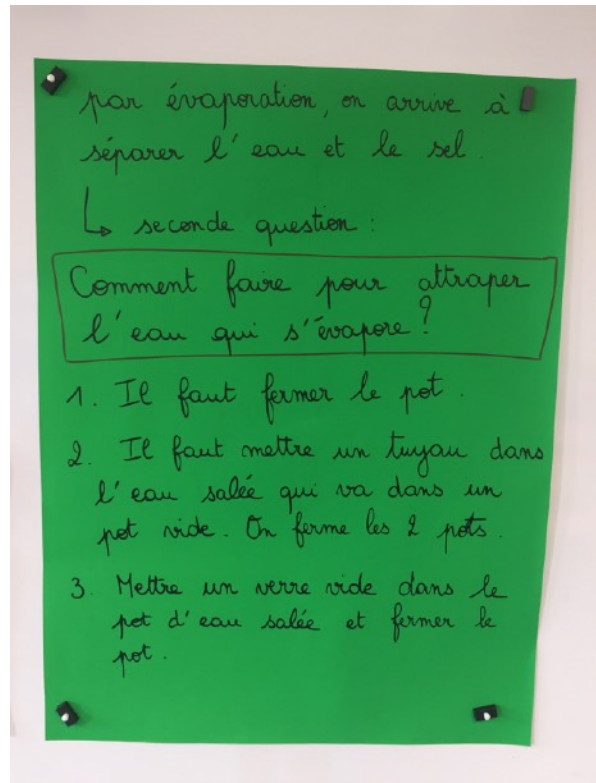 par évaporation, on arrive à
séparer l'eau et le sel.
↳ seconde question :
Comment faire pour attraper
l'eau qui s'évapore ?
1. Il faut fermer le pot.
2. Il faut mettre un tuyau dans
l'eau salée qui va dans un
pot vide. On ferme les 2 pots.
3. Mettre un verre vide dans le
pot d'eau salée et fermer le
pot.